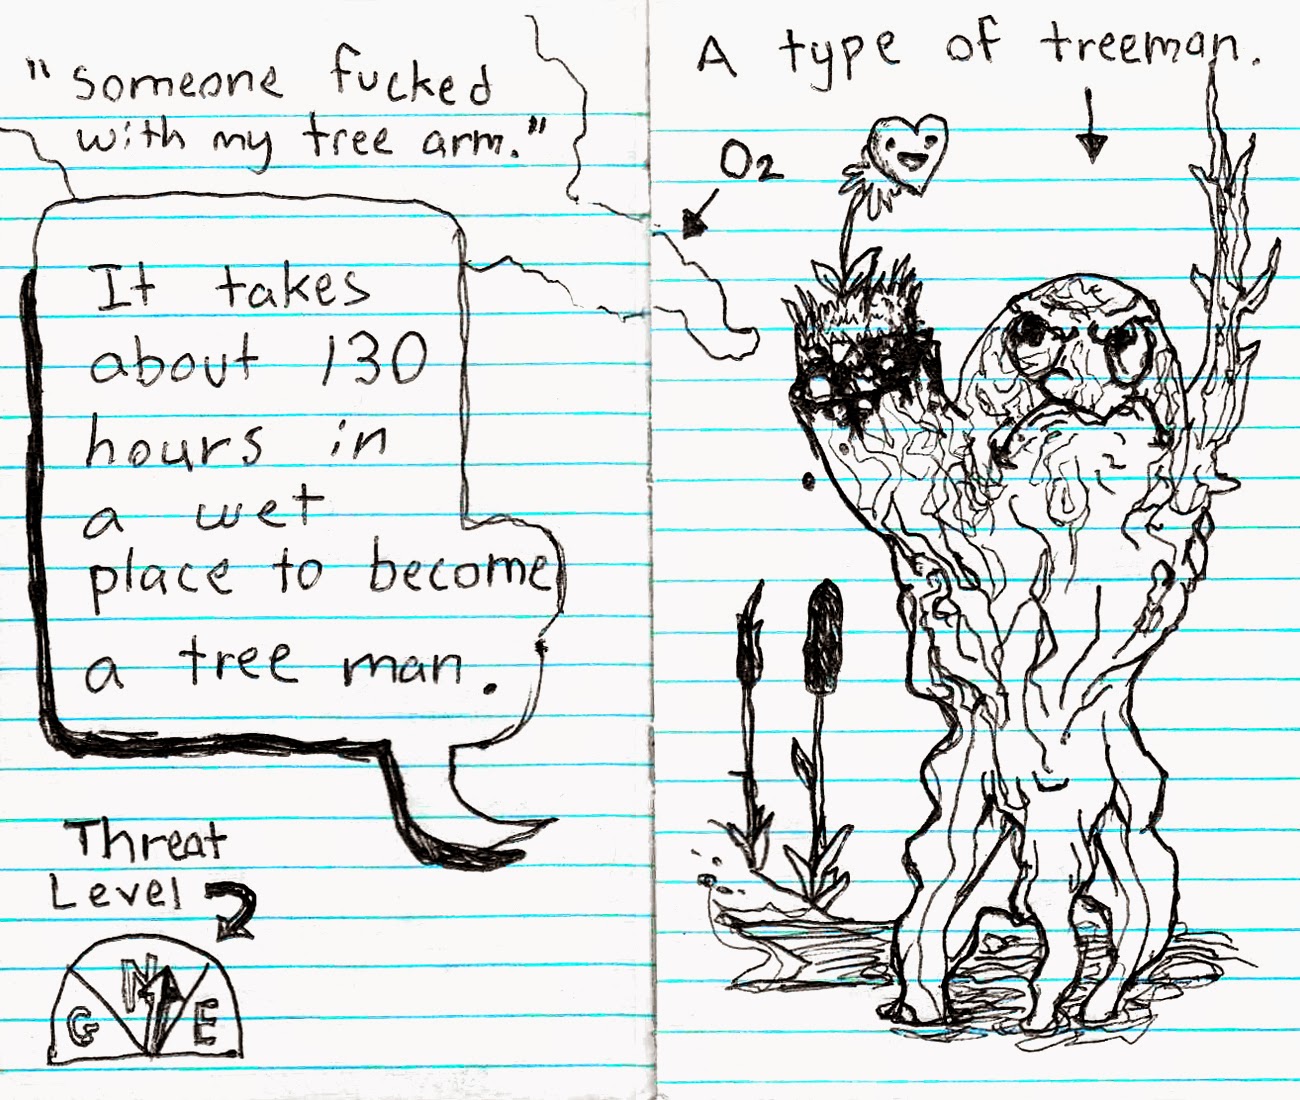 "someone fucked
with my tree arm."
It takes
about 130
hours in
a wet
place to become
a tree man.
Threat
Level
G N E
A type of treeman.
O2